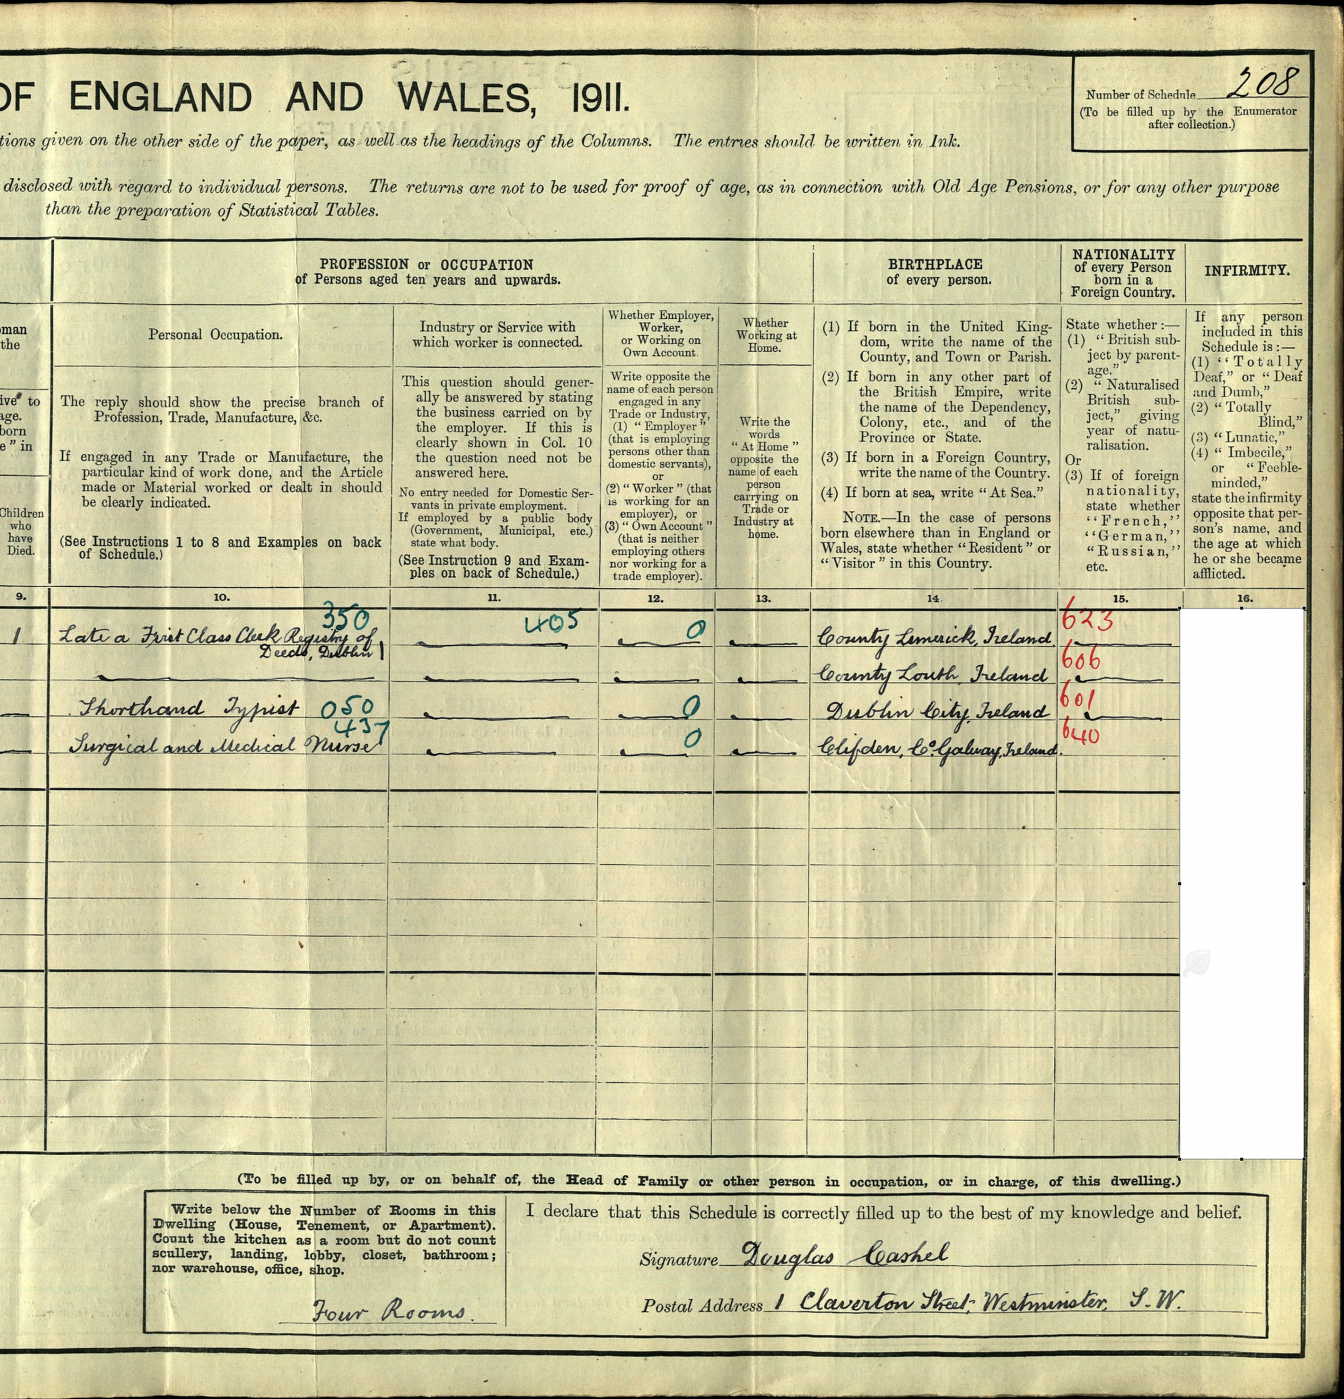 OF ENGLAND AND WALES, 1911.
Number of Schedule 208
(To be filled up by the Enumerator
after collection.)
tions given on the other side of the paper, as well as the headings of the Columns. The entries should be written in Ink.
disclosed with regard to individual persons. The returns are not to be used for proof of age, as in connection with Old Age Pensions, or for any other purpose
than the preparation of Statistical Tables.
man
the
ive" to
age.
born
e" in
Children
who
have
Died.
PROFESSION or OCCUPATION
of Persons aged ten years and upwards.
Personal Occupation.
The reply should show the precise branch of
Profession, Trade, Manufacture, &c.
If engaged in any Trade or Manufacture, the
particular kind of work done, and the Article
made or Material worked or dealt in should
be clearly indicated.
(See Instructions 1 to 8 and Examples on back
of Schedule.)
Industry or Service with
which worker is connected.
This question should gener-
ally be answered by stating
the business carried on by
the employer. If this is
clearly shown in Col. 10
the question need not be
answered here.
No entry needed for Domestic Ser-
vants in private employment.
If employed by a public body
(Government, Municipal, etc.)
state what body.
(See Instruction 9 and Exam-
ples on back of Schedule.)
Whether Employer,
Worker,
or Working on
Own Account.
Write opposite the
name of each person
engaged in any
Trade or Industry,
(1) "Employer"
(that is employing
persons other than
domestic servants),
or
(2) "Worker" (that
is working for an
employer), or
(3) "Own Account"
(that is neither
employing others
nor working for a
trade employer).
Whether
Working at
Home.
Write the
words
"At Home"
opposite the
name of each
person
carrying on
Trade or
Industry at
home.
BIRTHPLACE
of every person.
(1) If born in the United King-
dom, write the name of the
County, and Town or Parish.
(2) If born in any other part of
the British Empire, write
the name of the Dependency,
Colony, etc., and of the
Province or State.
(3) If born in a Foreign Country,
write the name of the Country.
(4) If born at sea, write "At Sea."
NOTE.—In the case of persons
born elsewhere than in England or
Wales, state whether "Resident" or
"Visitor" in this Country.
NATIONALITY
of every Person
born in a
Foreign Country.
State whether :—
(1) "British sub-
ject by parent-
age."
(2) "Naturalised
British sub-
ject," giving
year of natu-
ralisation.
Or
(3) If of foreign
nationality,
state whether
"French,"
"German,"
"Russian,"
etc.
INFIRMITY.
If any person
included in this
Schedule is :—
(1) "Totally
Deaf," or "Deaf
and Dumb,"
(2) "Totally
Blind,"
(3) "Lunatic,"
(4) "Imbecile,"
or "Feeble-
minded,"
state the infirmity
opposite that per-
son's name, and
the age at which
he or she became
afflicted.
9. 10. 11. 12. 13. 14. 15. 16.
350 405 0 623
1 Late a First Class Clerk Registry of County Limerick, Ireland
Deeds, Dublin
606
County Louth, Ireland
Shorthand Typist 050 0 Dublin City, Ireland 601
437 0 640
Surgical and Medical Nurse Clifden, Co. Galway, Ireland.
(To be filled up by, or on behalf of, the Head of Family or other person in occupation, or in charge, of this dwelling.)
Write below the Number of Rooms in this
Dwelling (House, Tenement, or Apartment).
Count the kitchen as a room but do not count
scullery, landing, lobby, closet, bathroom;
nor warehouse, office, shop.
Four Rooms.
I declare that this Schedule is correctly filled up to the best of my knowledge and belief.
Signature Douglas Cashel
Postal Address 1 Claverton Street, Westminster, S.W.